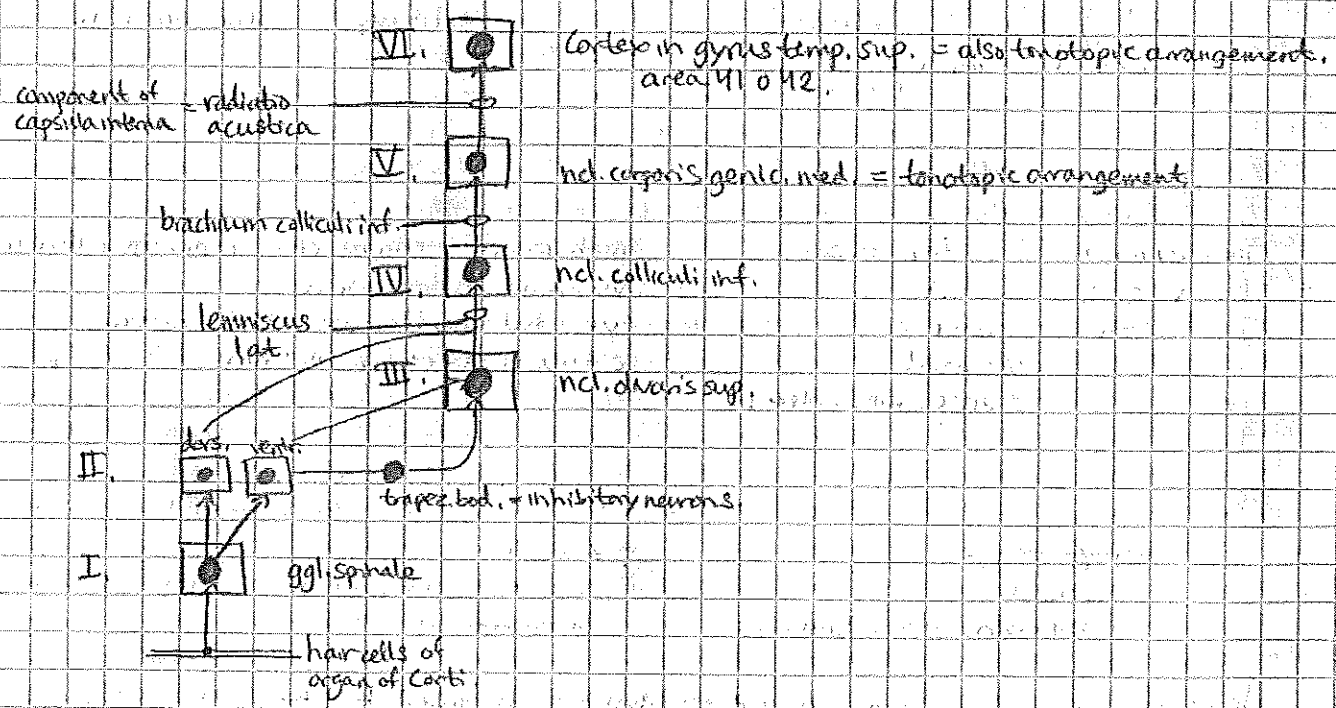 VI. Cortex in gyrus temp. sup. = also tonotopic arrangement.
area 41 o 42.
component of = radiatio
capsula interna acustica
V. ncl. corporis genic. med. = tonotopic arrangement
brachium colliculi inf.
IV. ncl. colliculi inf.
lemniscus
lat.
III. ncl. olivaris sup.
dors. ventr.
II.
trapez. bod. = inhibitory neurons.
I. ggl. spirale
hair cells of
organ of Corti